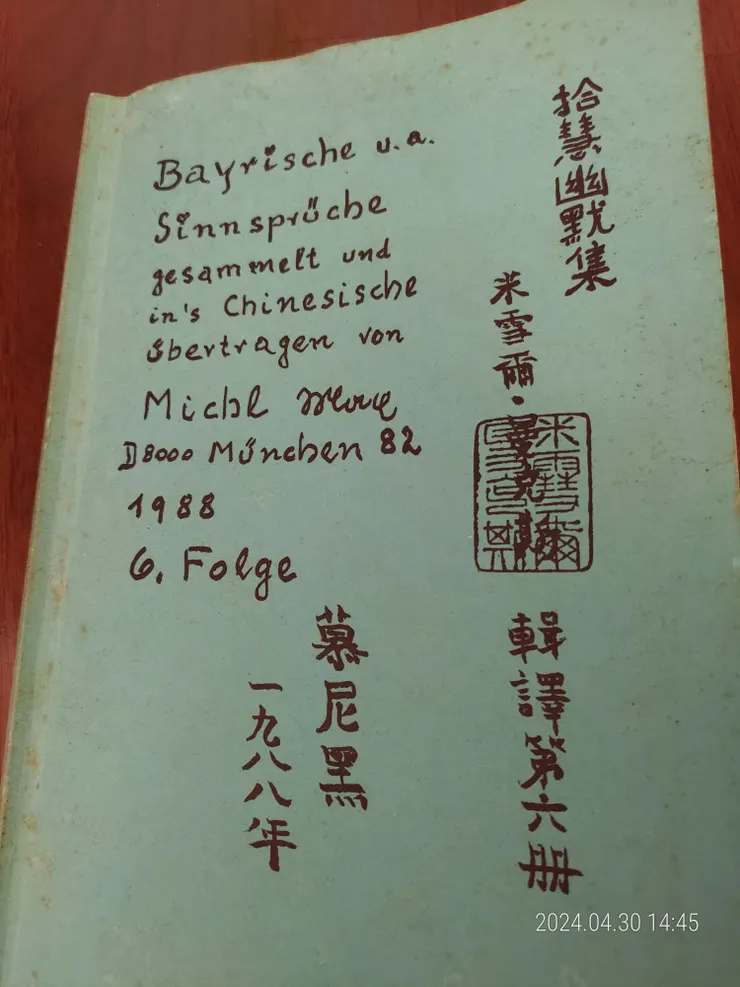 Bayrische u.a.
Sinnsprüche
gesammelt und
in's Chinesische
übertragen von
Michl
D8000 München 82
1988
6. Folge
拾慧幽默集
米雪爾·
輯譯第六册
慕尼黑
一九八八年
2024.04.30 14:45